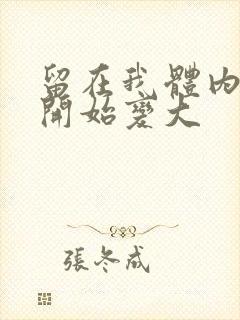 留在我體內
開始變大
張冬成